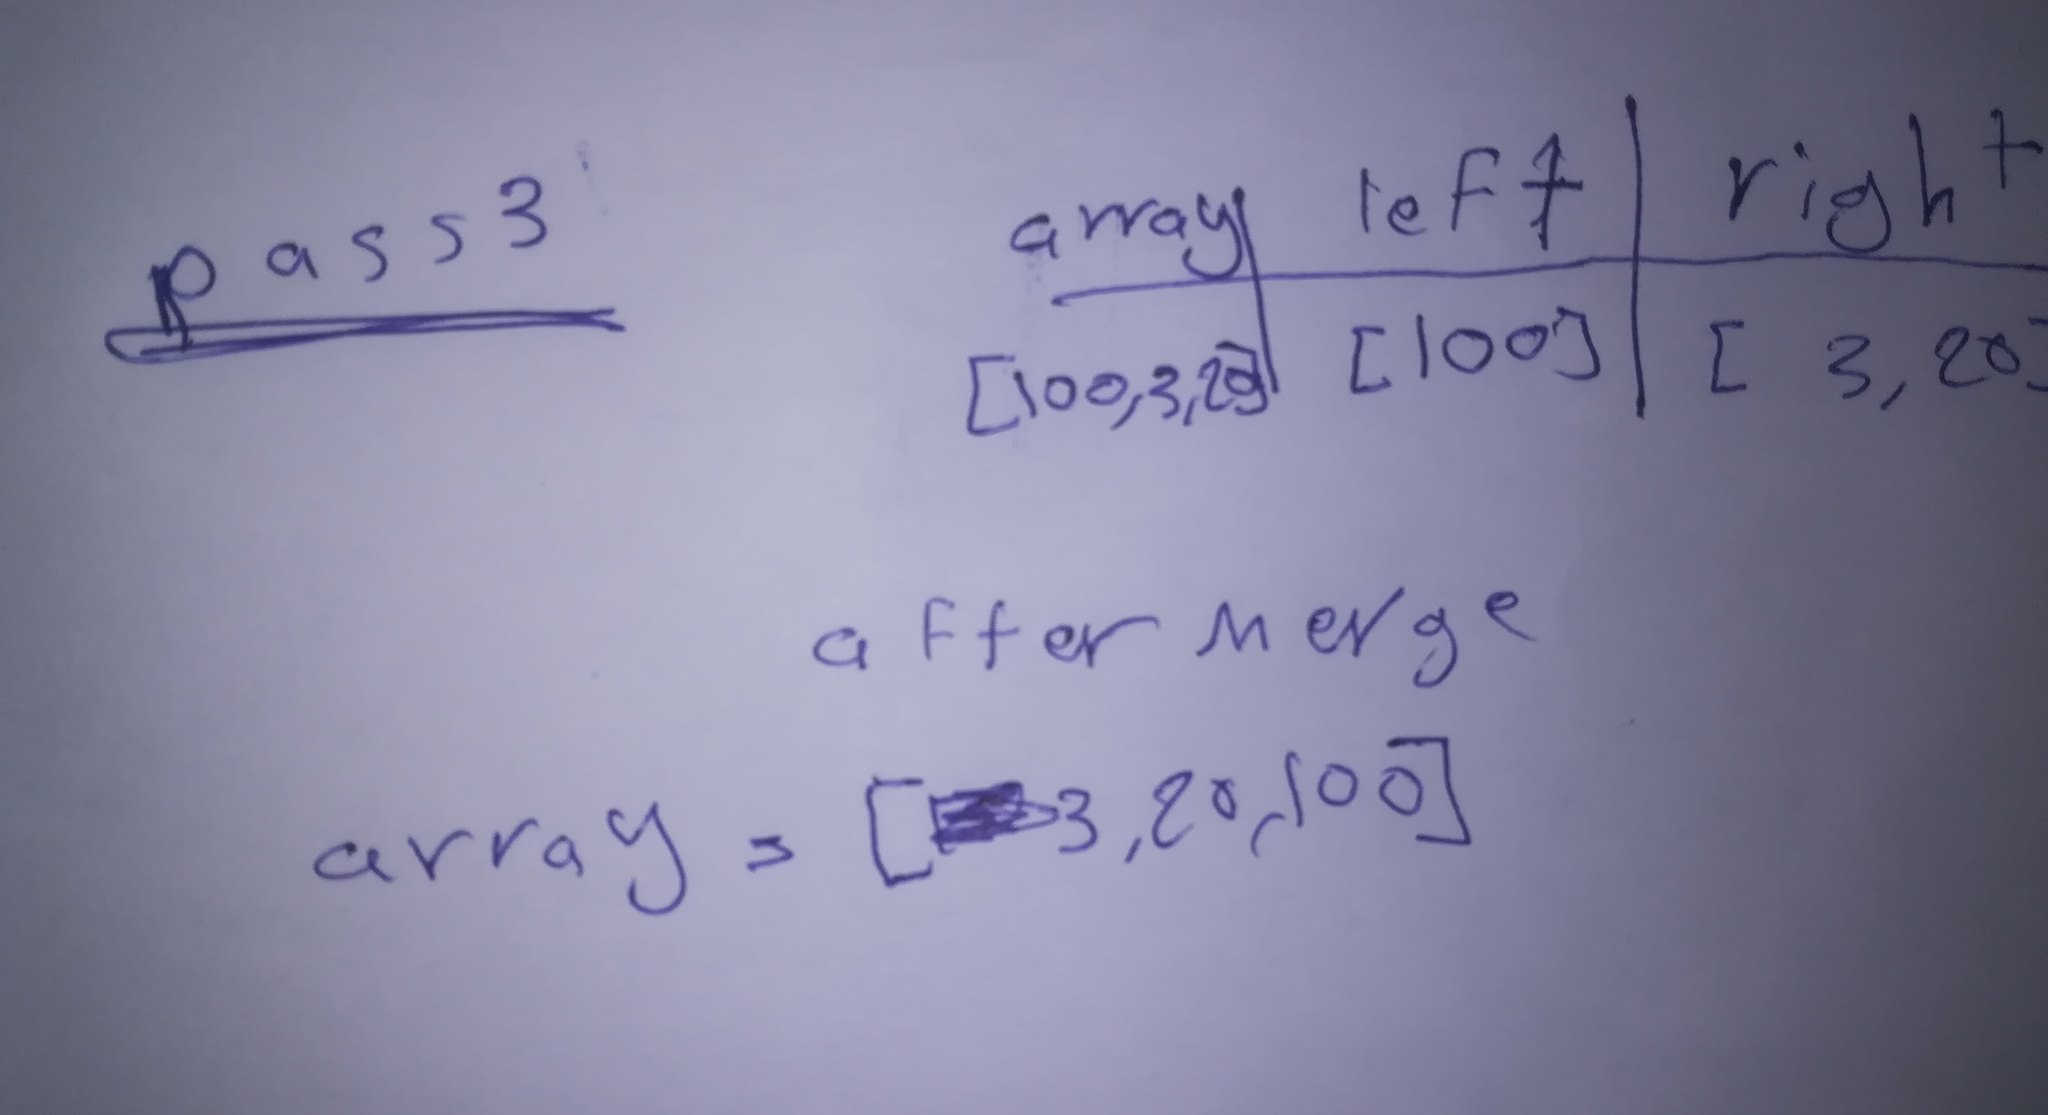 pass3
array left right
[100,3,20] [100] [ 3,20]
after merge
array = [3,20,100]